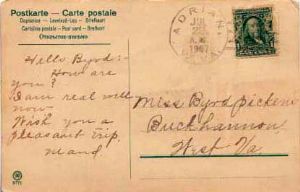 Postkarte — Carte postale
Dopisnice — Levelező-Lap — Briefkaart
Cartolina postale — Post card — Brefkort
Hello Byrd:-
How are
you?
I am real well
now.
Wish you a
pleasant trip.
Maud.
ADRIAN
JUL
1907
W. VA.
Miss Byrd Pickens
Buckhannon
West Va